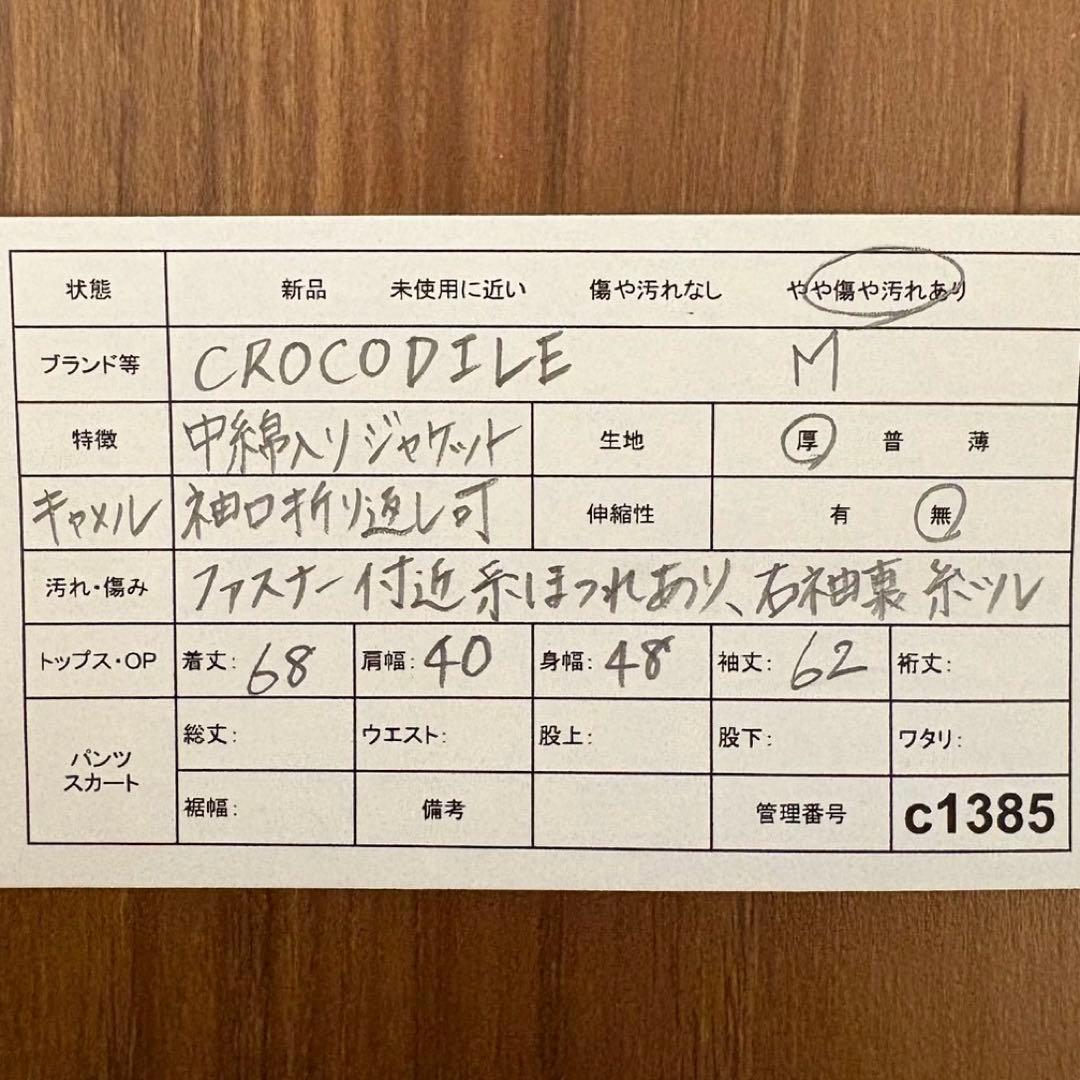 状態 新品 未使用に近い 傷や汚れなし やや傷や汚れあり
ブランド等 CROCODILE M
特徴 中綿入りジャケット 生地 厚 普 薄
キャメル 袖口折り返し可 伸縮性 有 無
汚れ・傷み ファスナー付近糸ほつれあり、右袖裏糸ツル
トップス・OP 着丈: 68 肩幅: 40 身幅: 48 袖丈: 62 裄丈:
パンツ スカート 総丈: ウエスト: 股上: 股下: ワタリ:
裾幅: 備考 管理番号 c1385